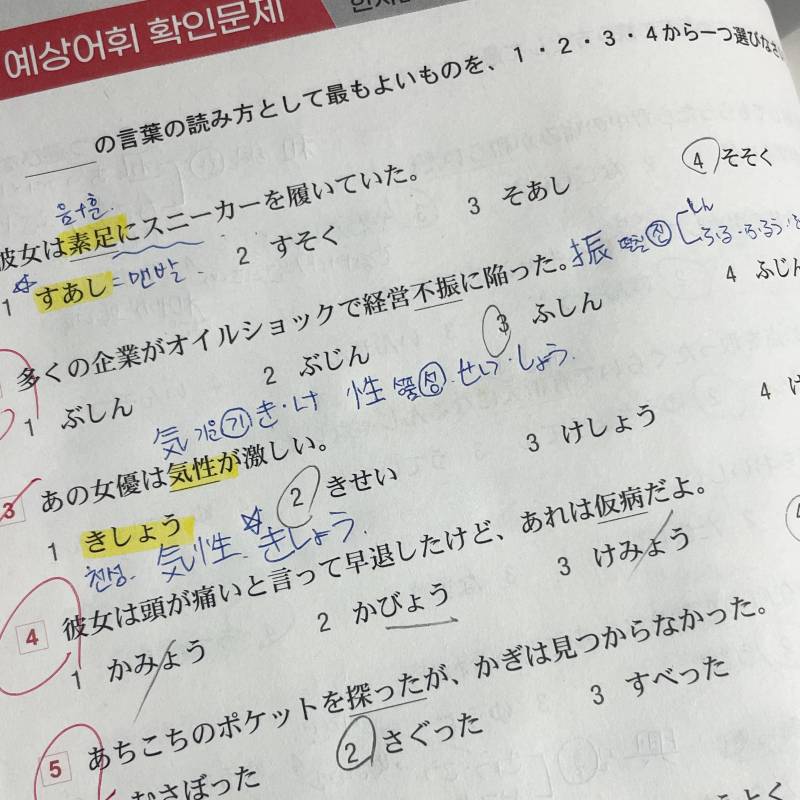 예상어휘 확인문제
の言葉の読み方として最もよいものを、1・2・3・4から一つ選びなさ
음+훈.
彼女は素足にスニーカーを履いていた。
1 すあし = 맨발 2 すそく 3 そあし 4 そそく
多くの企業がオイルショックで経営不振に陥った。
振 떨칠 진 しん
ふる・ふるう・
1 ぶしん 2 ぶじん 3 ふしん 4 ふじん
気 기운 기 き・け 性 성품 성 せい・しょう
3 あの女優は気性が激しい。
1 きしょう 2 きせい 3 けしょう 4
천성. 気性 きしょう
4 彼女は頭が痛いと言って早退したけど、あれは仮病だよ。
1 かみょう 2 かびょう 3 けみょう
5 あちこちのポケットを探ったが、かぎは見つからなかった。
むさぼった 2 さぐった 3 すべった